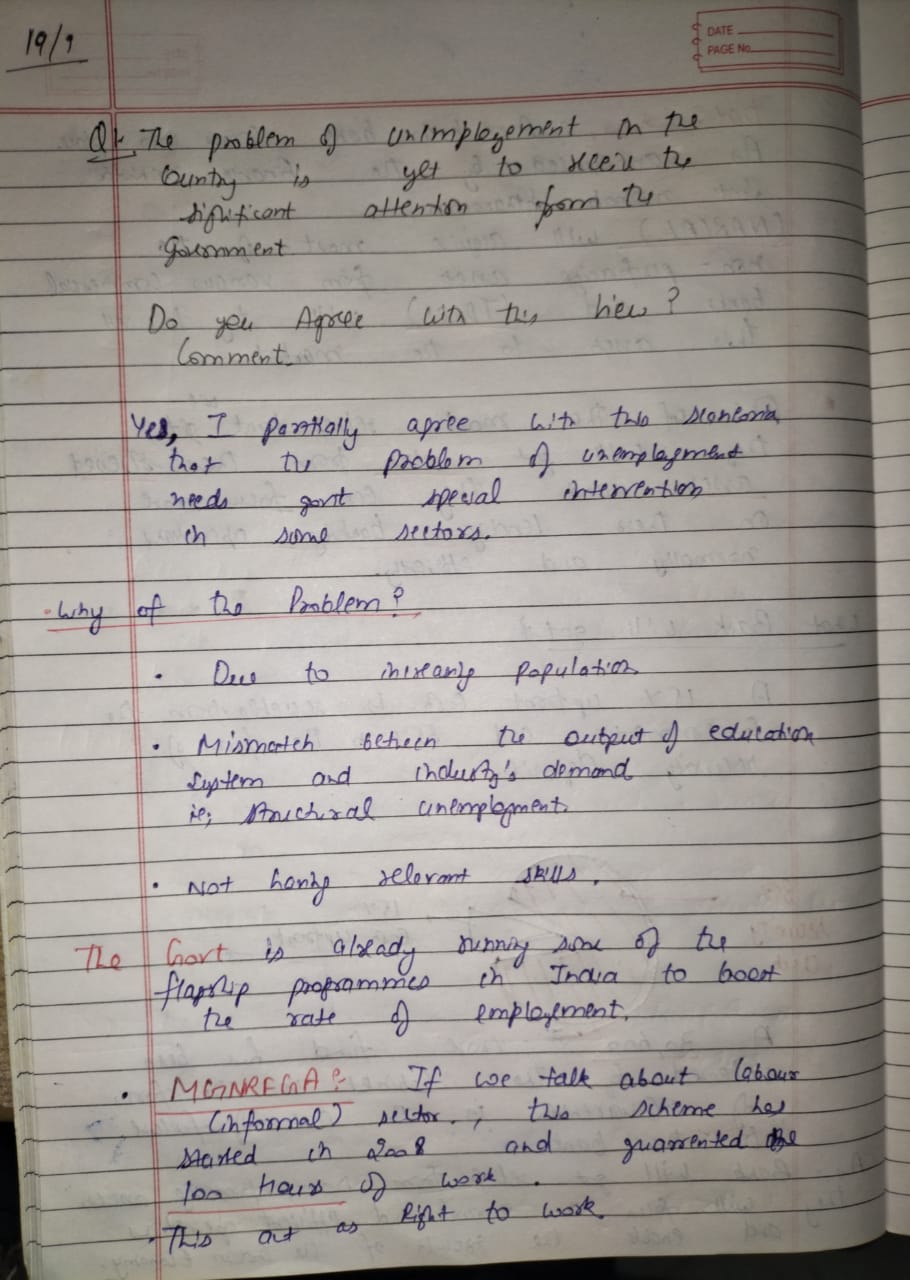 19/9
DATE
PAGE No.
Q1. The problem of unemployement in the
Country is yet to receive the
significant attention from the
Government.
Do you Agree with this view?
Comment.
Yes, I partially agree with this
that the problem of unemployement
needs govt special intervention
in some sectors.
Why of the Problem?
• Due to increasing population
• Mismatch between the output of education
system and industry's demand
ie; structural unemployment.
• Not having relevant skills.
The Govt is already running some of the
flagship programmes in India to boost
the rate of employement.
• MGNREGA :- If we talk about labour
(informal) sector, this scheme has
started in 2008 and guarrented the
100 hours of work.
• This act as Right to work.